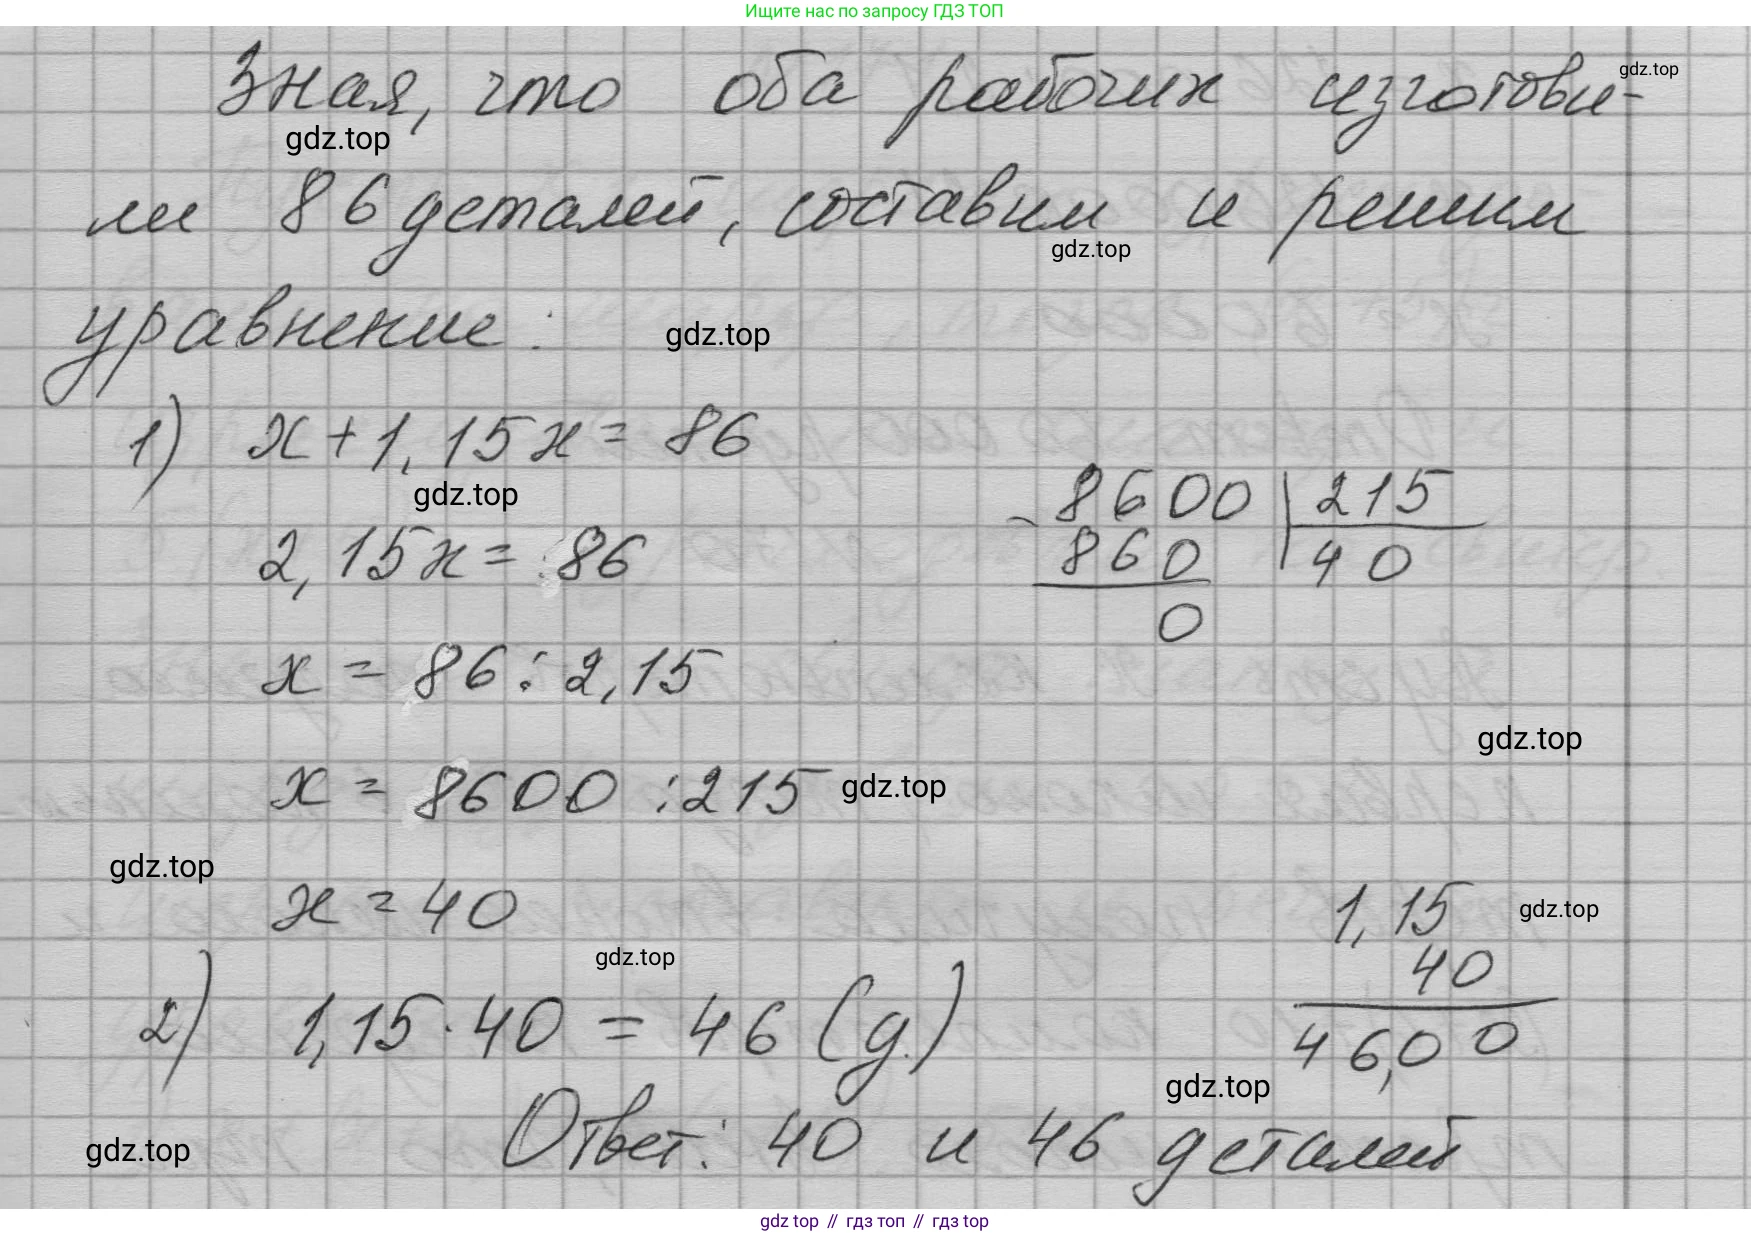 Ищите нас по запросу ГДЗ ТОП
Зная, что оба рабочих изготови-
gdz.top
gdz.top
ли 86 деталей, составим и решим
gdz.top
уравнение:
gdz.top
1) x + 1,15x = 86
gdz.top
8600 | 215
2,15x = 86
- 860 40
0
x = 86 : 2,15
gdz.top
x = 8600 : 215
gdz.top
gdz.top
x = 40
1,15
gdz.top
40
gdz.top
2) 1,15 · 40 = 46 (д.)
46,00
gdz.top
Ответ: 40 и 46 деталей
gdz.top
gdz top // гдз топ // gdz top